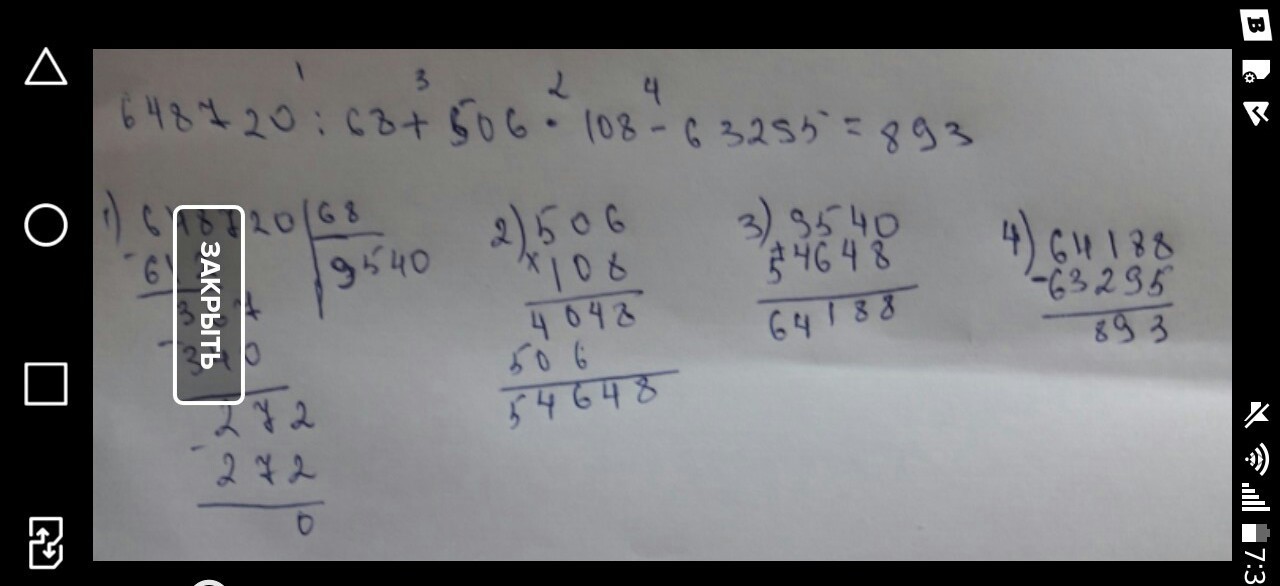 1 3 2 4
648720 : 68 + 506 · 108 - 63295 = 893
1) 648720 | 68
9540
-340
-272
272
0
2) 506
×108
4048
506
54648
3) 9540
+54648
64188
4) 64188
-63295
893
ЗАКРЫТЬ
B
7:3